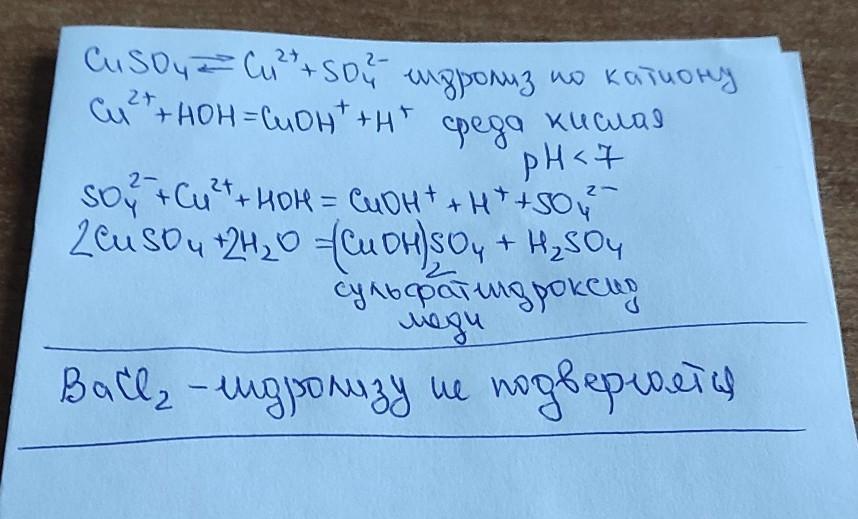 CuSO₄ ⇄ Cu²⁺ + SO₄²⁻ гидролиз по катиону
Cu²⁺ + HOH = CuOH⁺ + H⁺ среда кислая
pH < 7
SO₄²⁻ + Cu²⁺ + HOH = CuOH⁺ + H⁺ + SO₄²⁻
2CuSO₄ + 2H₂O = (CuOH)₂SO₄ + H₂SO₄
сульфат гидроксид
меди
BaCl₂ – гидролизу не подвергается